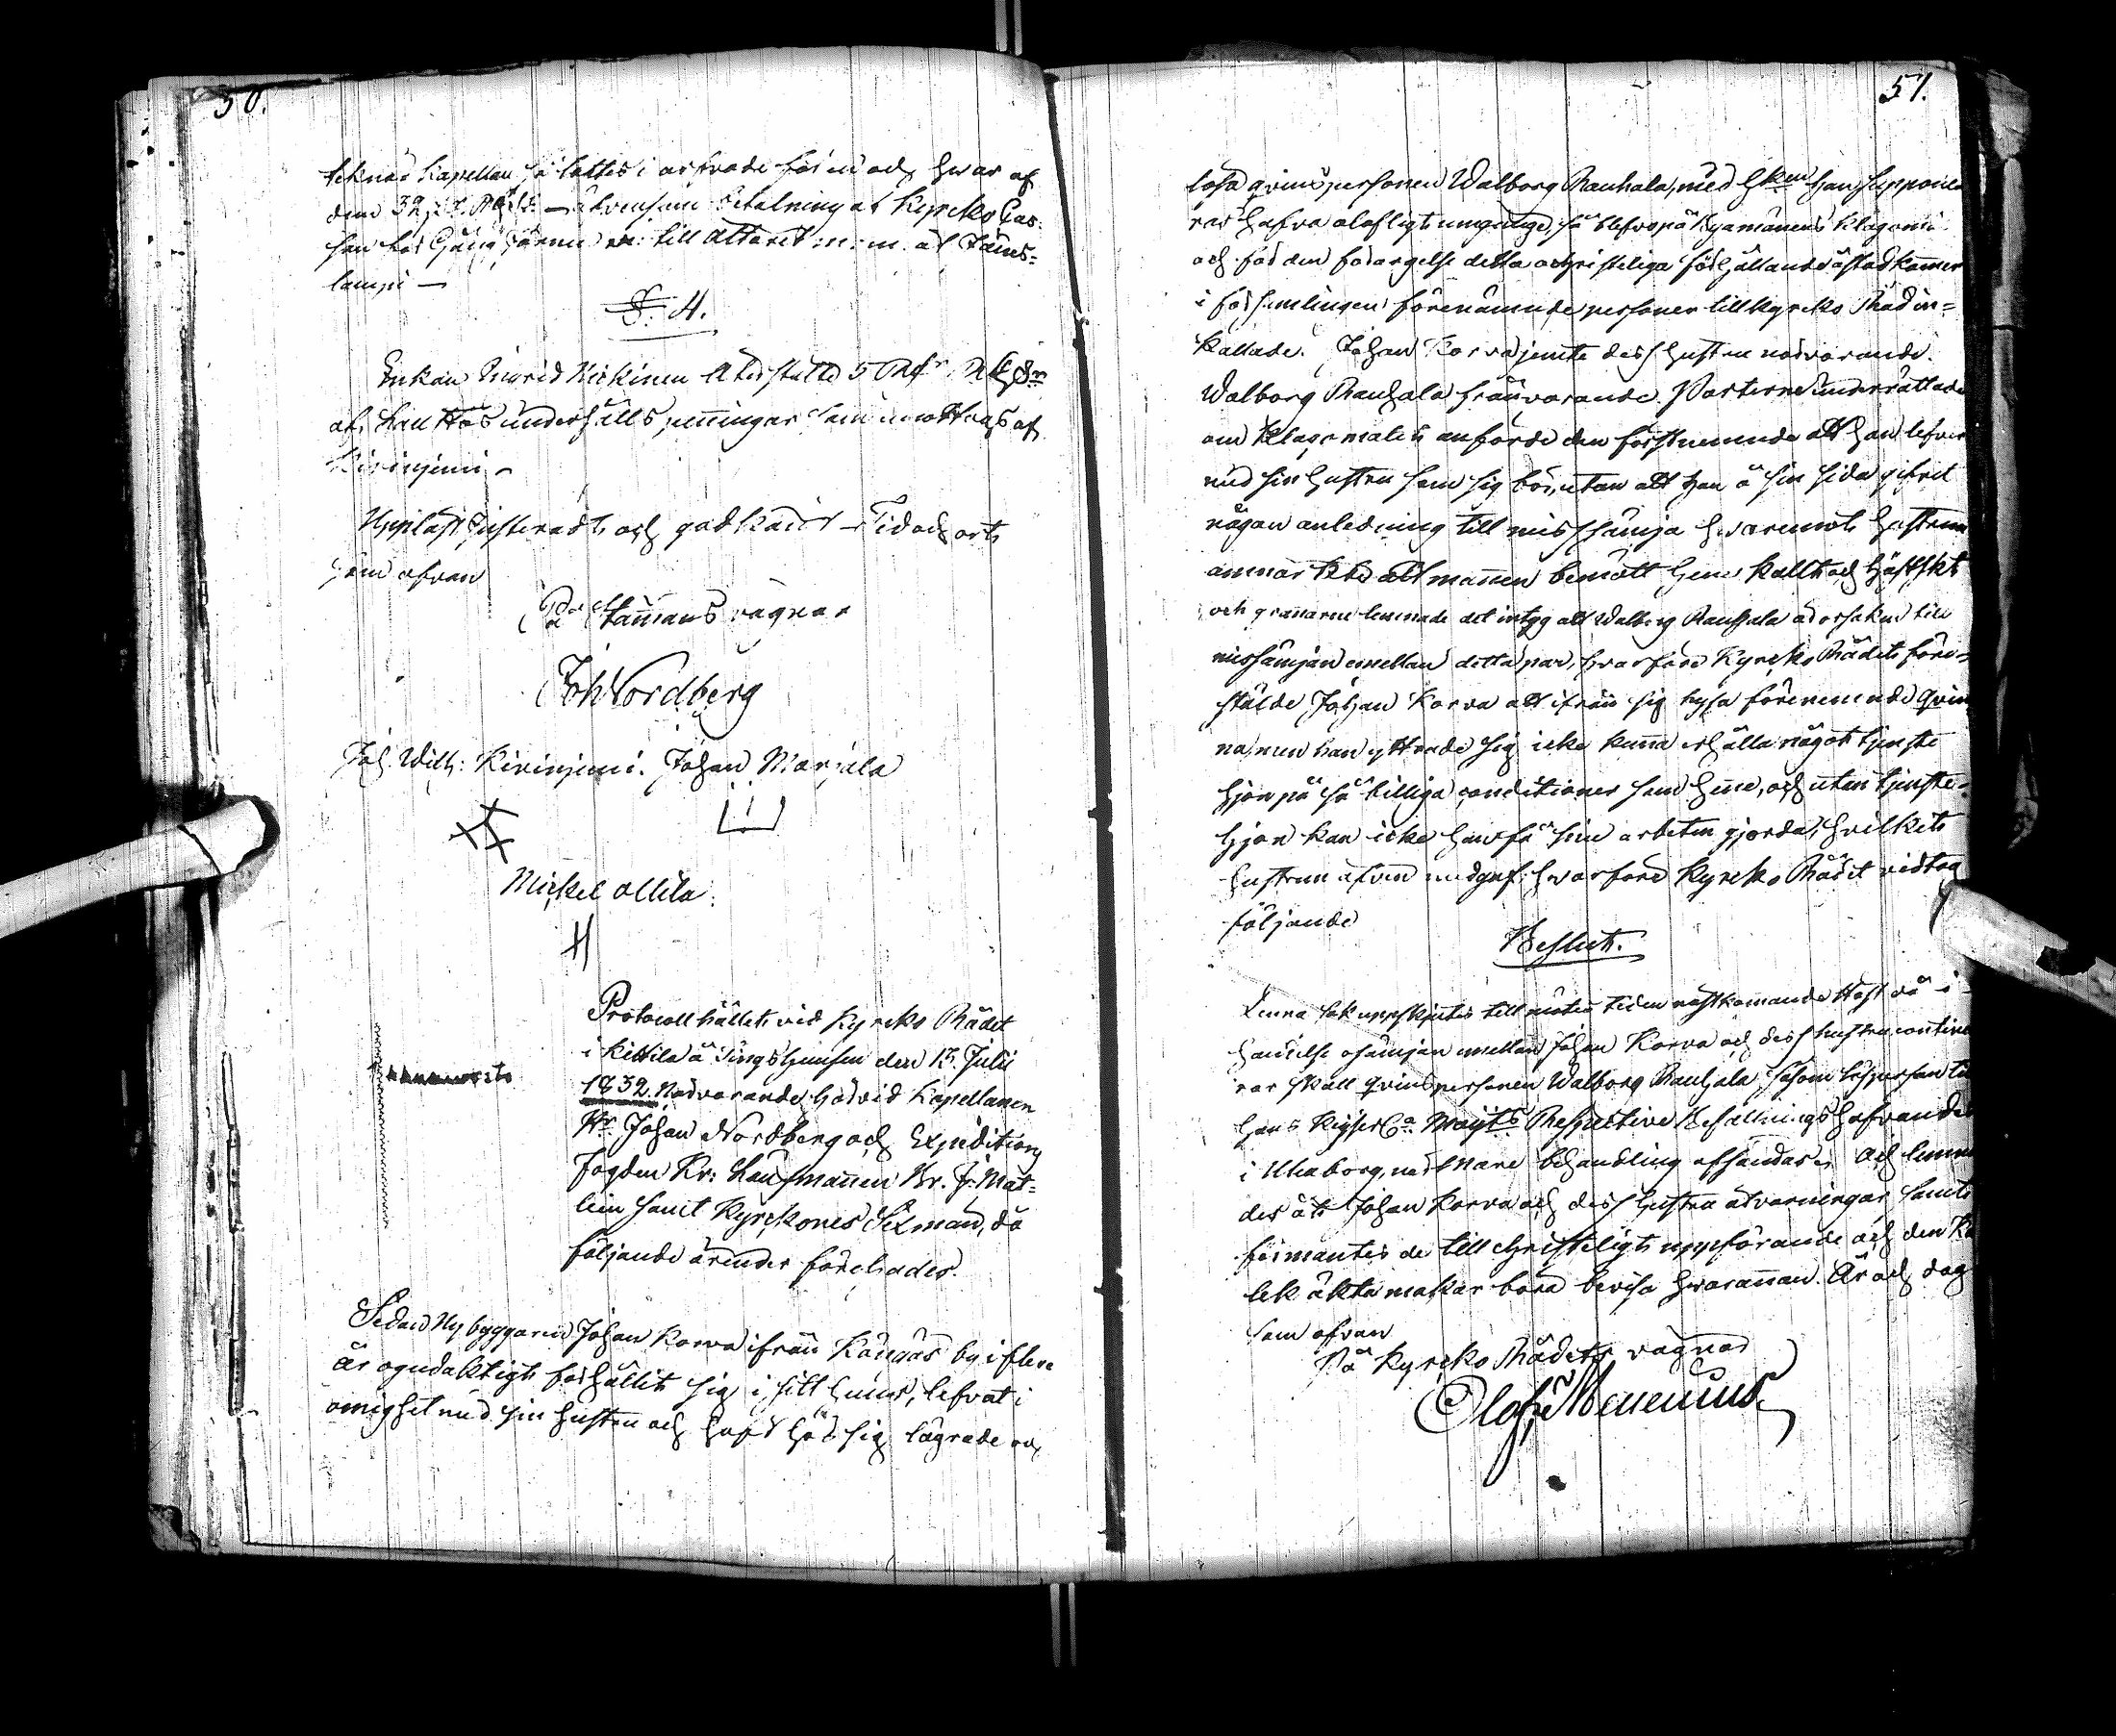 50.
Kapellan så lattes i arfvode för en och hvar af
dem 32 betalning af Kyrcko Cas-
san för till Altaret m: m: åt
lampi —
§. 4.
Enkan Ingrid Kickinen Återstälte 5
af Lauttas underhålls penningar som emottogs af
Kiviniemi —
Uppläst, Justeradt och godkändt — Tid och ort
som ofvan
På Stämans vägnar
Joh Nordberg
Joh. Wilh: Kiviniemi. Johan Marjala
Mickel Ollila.
Protocoll hållit vid Kyrcko Rådet
i Kittila å Tingshuusen den 15 Julii
1832. Närvarande härvid Kapellanen
Hr Johan Nordberg och Expeditions
Fogden Kr: Länsmannen Hr. J. Mat-
lein samt Kyrckones Sexman, då
följande ärender förehades.
Sedan Nybyggaren Johan Korva ifrån Kaukas by i flere
år ogudaktigt förhållit sig i sitt huus, lefvat i
oenighet med sin hustru och haft hos sig lägrade och
51.
lösa qvinspersonen Walborg Rauhala, med hvilken han supponer
ras hafva olofligt umgänge, så blefvo på Byamännens klagomål
och för den förargelse detta ochristeliga förhållande åstadkommer
i församlingen förenämnde personer till Kyrcko Råd in-
kallade. Johan Korva jemte dess hustru närvarande.
Walborg Rauhala frånvarande. Parterne underrättade
om klagomålet anförde den förstnemnde att han lefver
med sin hustru som sig bör, utan att han å sin sida gifvit
någon anledning till misssämja hvaremot hustrun
anmärkte att mannen bemött henne kallt och häftigt
och grannarne lemnade det intyg att Walborg Rauhala är orsaken till
missämjan emellan detta par, hvarföre Kyrcko Rådet före-
stälde Johan Korva att ifrån sig hysa förenemnde qvin
na, men han yttrade sig icke kunna erhålla något tjenste
hjon på så billiga conditioner som henne, och utan tjenste-
hjon kan icke han få sina arbeten gjorda, hvilket
hustrun äfven medgaf: hvarföre Kyrcko Rådet vidtog
följande
Beslut.
Denna sak uppskjutes till möten tiden nästkomande Höst då i
händelse osämjan emellan Johan Korva och dess hustru continue
rar skall qvinspersonen Walborg Rauhala, såsom lösperson till
Hans Kejserliga Majts Respective Befallningshafvande
i Uleaborg, närmare behandling afsändas. Och lemna
des åt Johan Korva och dess hustru åtvarningar samt
förmantes de till Christeligt uppförande och den Kär
lek äkta makar böra bevisa hvarannan. År och dag
som ofvan
På Kyrcko Rådets vägnar
Olof Menenius